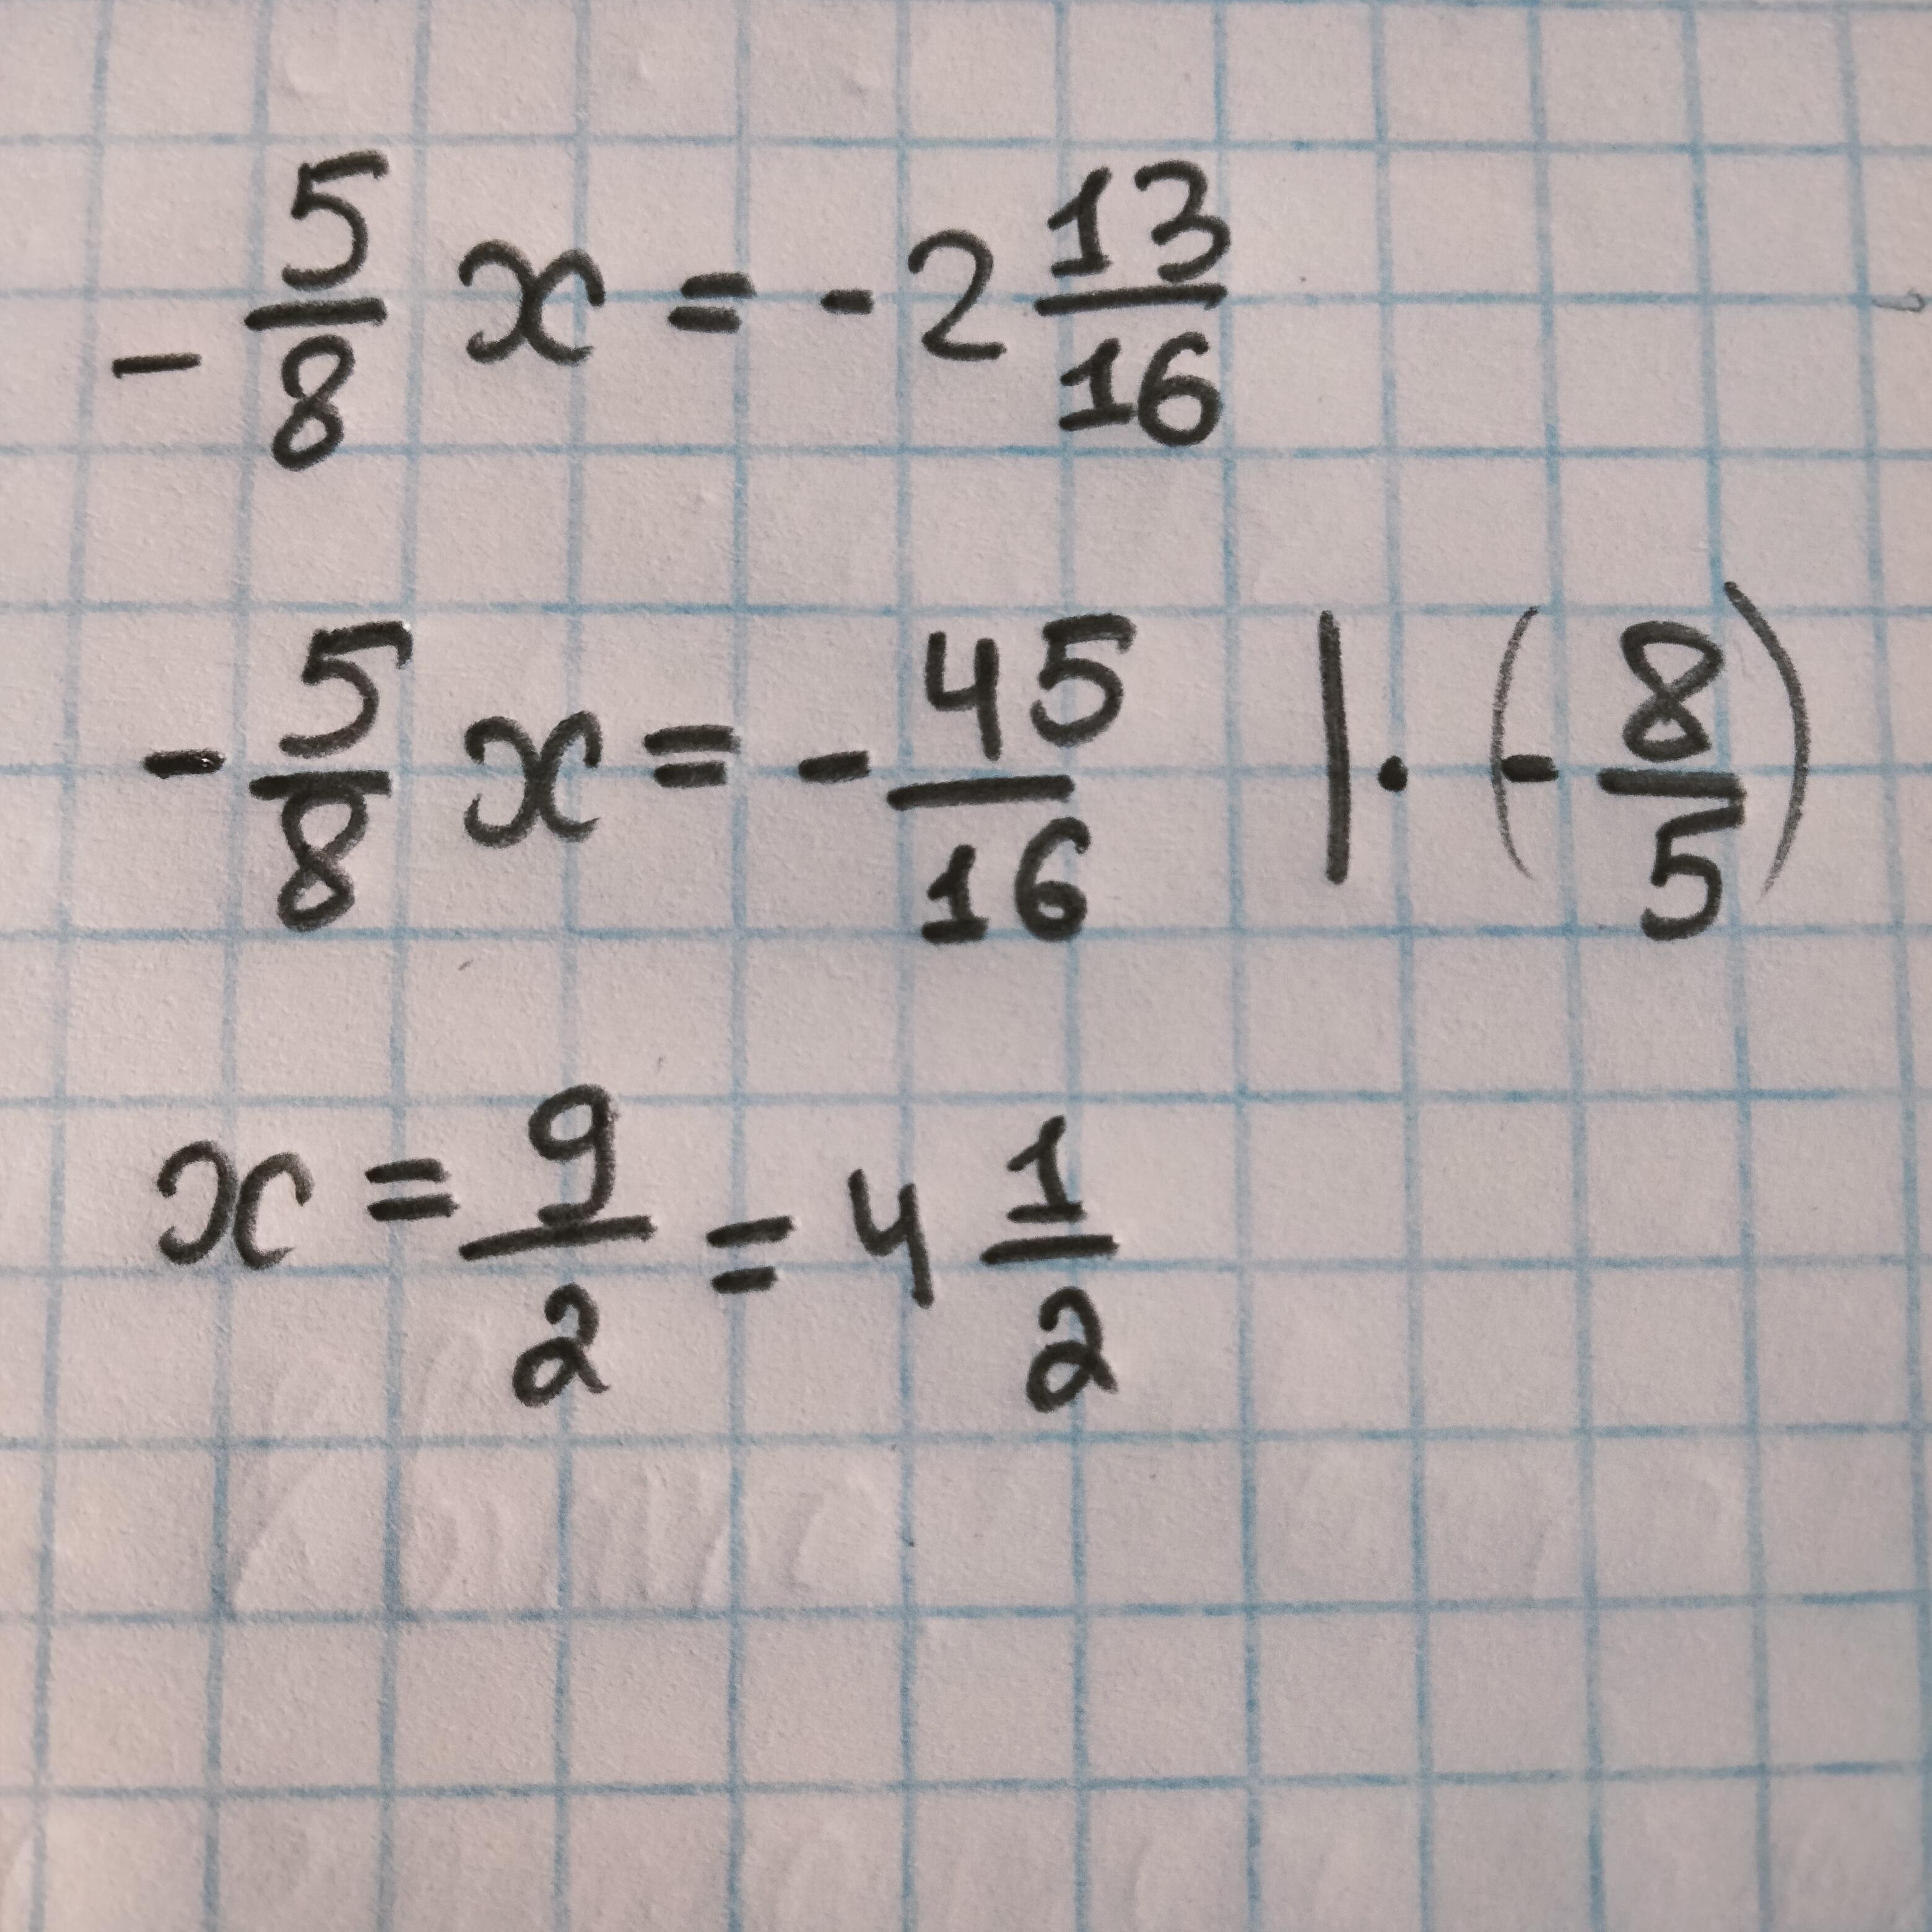 -5/8 x = -2 13/16
-5/8 x = -45/16 | · (-8/5)
x = 9/2 = 4 1/2